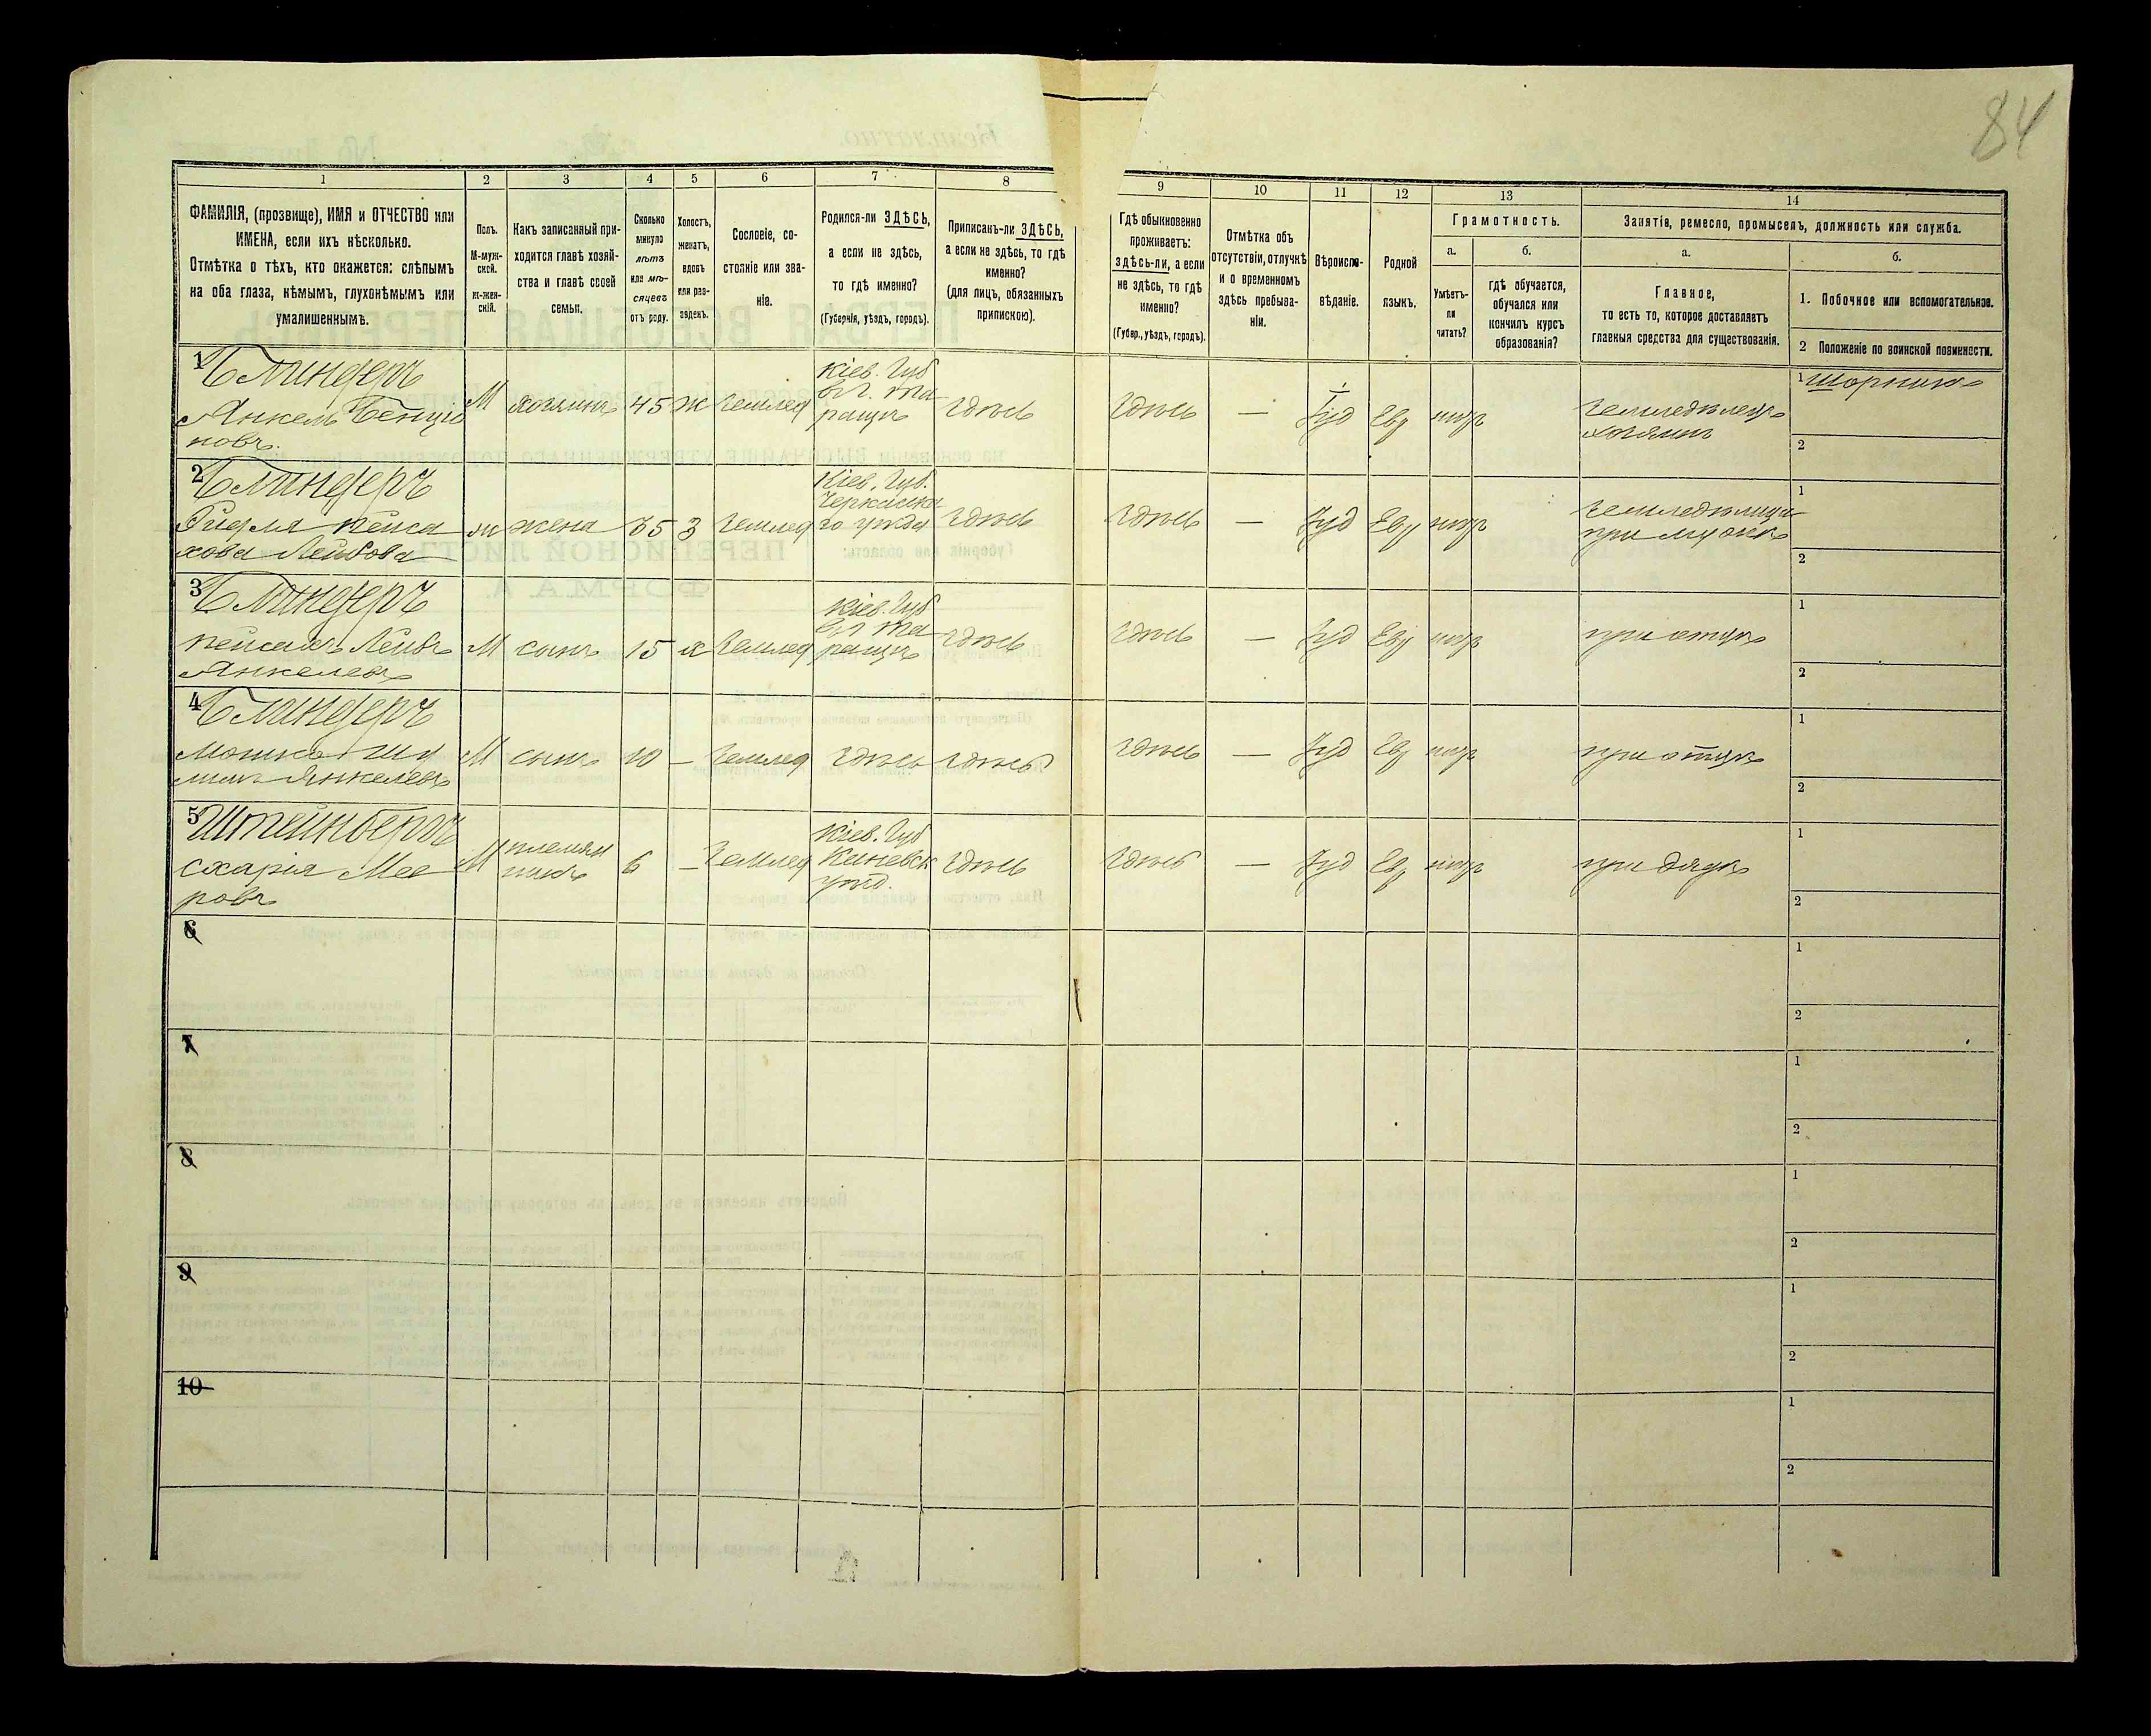 84
1
2
3
4
5
6
7
8
9
10
11
12
13
14
ФАМИЛІЯ, (прозвище), ИМЯ и ОТЧЕСТВО или
ИМЕНА, если ихъ нѣсколько.
Отмѣтка о тѣхъ, кто окажется: слѣпымъ
на оба глаза, нѣмымъ, глухонѣмымъ или
умалишеннымъ.
Полъ.
М-муж-
ской.
Ж-жен-
скій.
Какъ записанный при-
ходится главѣ хозяй-
ства и главѣ своей
семьи.
Сколько
минуло
лѣтъ
или мѣ-
сяцевъ
отъ роду.
Холостъ,
женатъ,
вдовъ
или раз-
веденъ.
Сословіе, со-
стояніе или зва-
ніе.
Родился-ли ЗДѢСЬ,
а если не здѣсь,
то гдѣ именно?
(Губернія, уѣздъ, городъ).
Приписанъ-ли ЗДѢСЬ,
а если не здѣсь, то гдѣ
именно?
(для лицъ, обязанныхъ
припискою).
Гдѣ обыкновенно
проживаетъ:
ЗДѢСЬ-ли, а если
не здѣсь, то гдѣ
именно?
(Губер., уѣздъ, городъ).
Отмѣтка объ
отсутствіи, отлучкѣ
и о временномъ
здѣсь пребыва-
ніи.
Вѣроиспо-
вѣданіе.
Родной
языкъ.
Грамотность.
а.
б.
Умѣетъ-
ли
читать?
гдѣ обучается,
обучался или
кончилъ курсъ
образованія?
Занятія, ремесло, промыселъ, должность или служба.
а.
б.
Главное,
то есть то, которое доставляетъ
главныя средства для существованія.
1. Побочное или вспомогательное.
2 Положеніе по воинской повинности.
1
Блиндеръ
Янкель Бенціо
новъ.
М
хозяинъ
45
ж
Землед
Кіев. Губ
въ г. Та
ращѣ
здѣсь
здѣсь
—
Іуд
Евр
землѣделецъ
хозяинъ
1 Шорникъ
2
2
Блиндеръ
жена
35
З
Землед
Кіев. Губ.
Черкаска
го уѣзда
здѣсь
здѣсь
—
Іуд
Евр
при мужѣ
1
2
3
Блиндеръ
Пейсахъ Лейбъ
Янкелевъ
М
сынъ
15
х
Землед
Кіев. Губ
въ г Та
ращѣ
здѣсь
здѣсь
—
Іуд
Евр
при отцѣ
1
2
4
Блиндеръ
Мошко Шу
лимъ Янкелевъ
М
сынъ
10
—
Землед
здѣсь
здѣсь
здѣсь
—
Іуд
Евр
при отцѣ
1
2
5
Штейнбергъ
Схарія Мее
ровъ
М
племян
никъ
6
—
Землед
Кіев. Губ
Каневск
уѣзд.
здѣсь
здѣсь
—
Іуд
Евр
при дядѣ
1
2
6
1
2
7
1
2
8
1
2
9
1
2
10
1
2